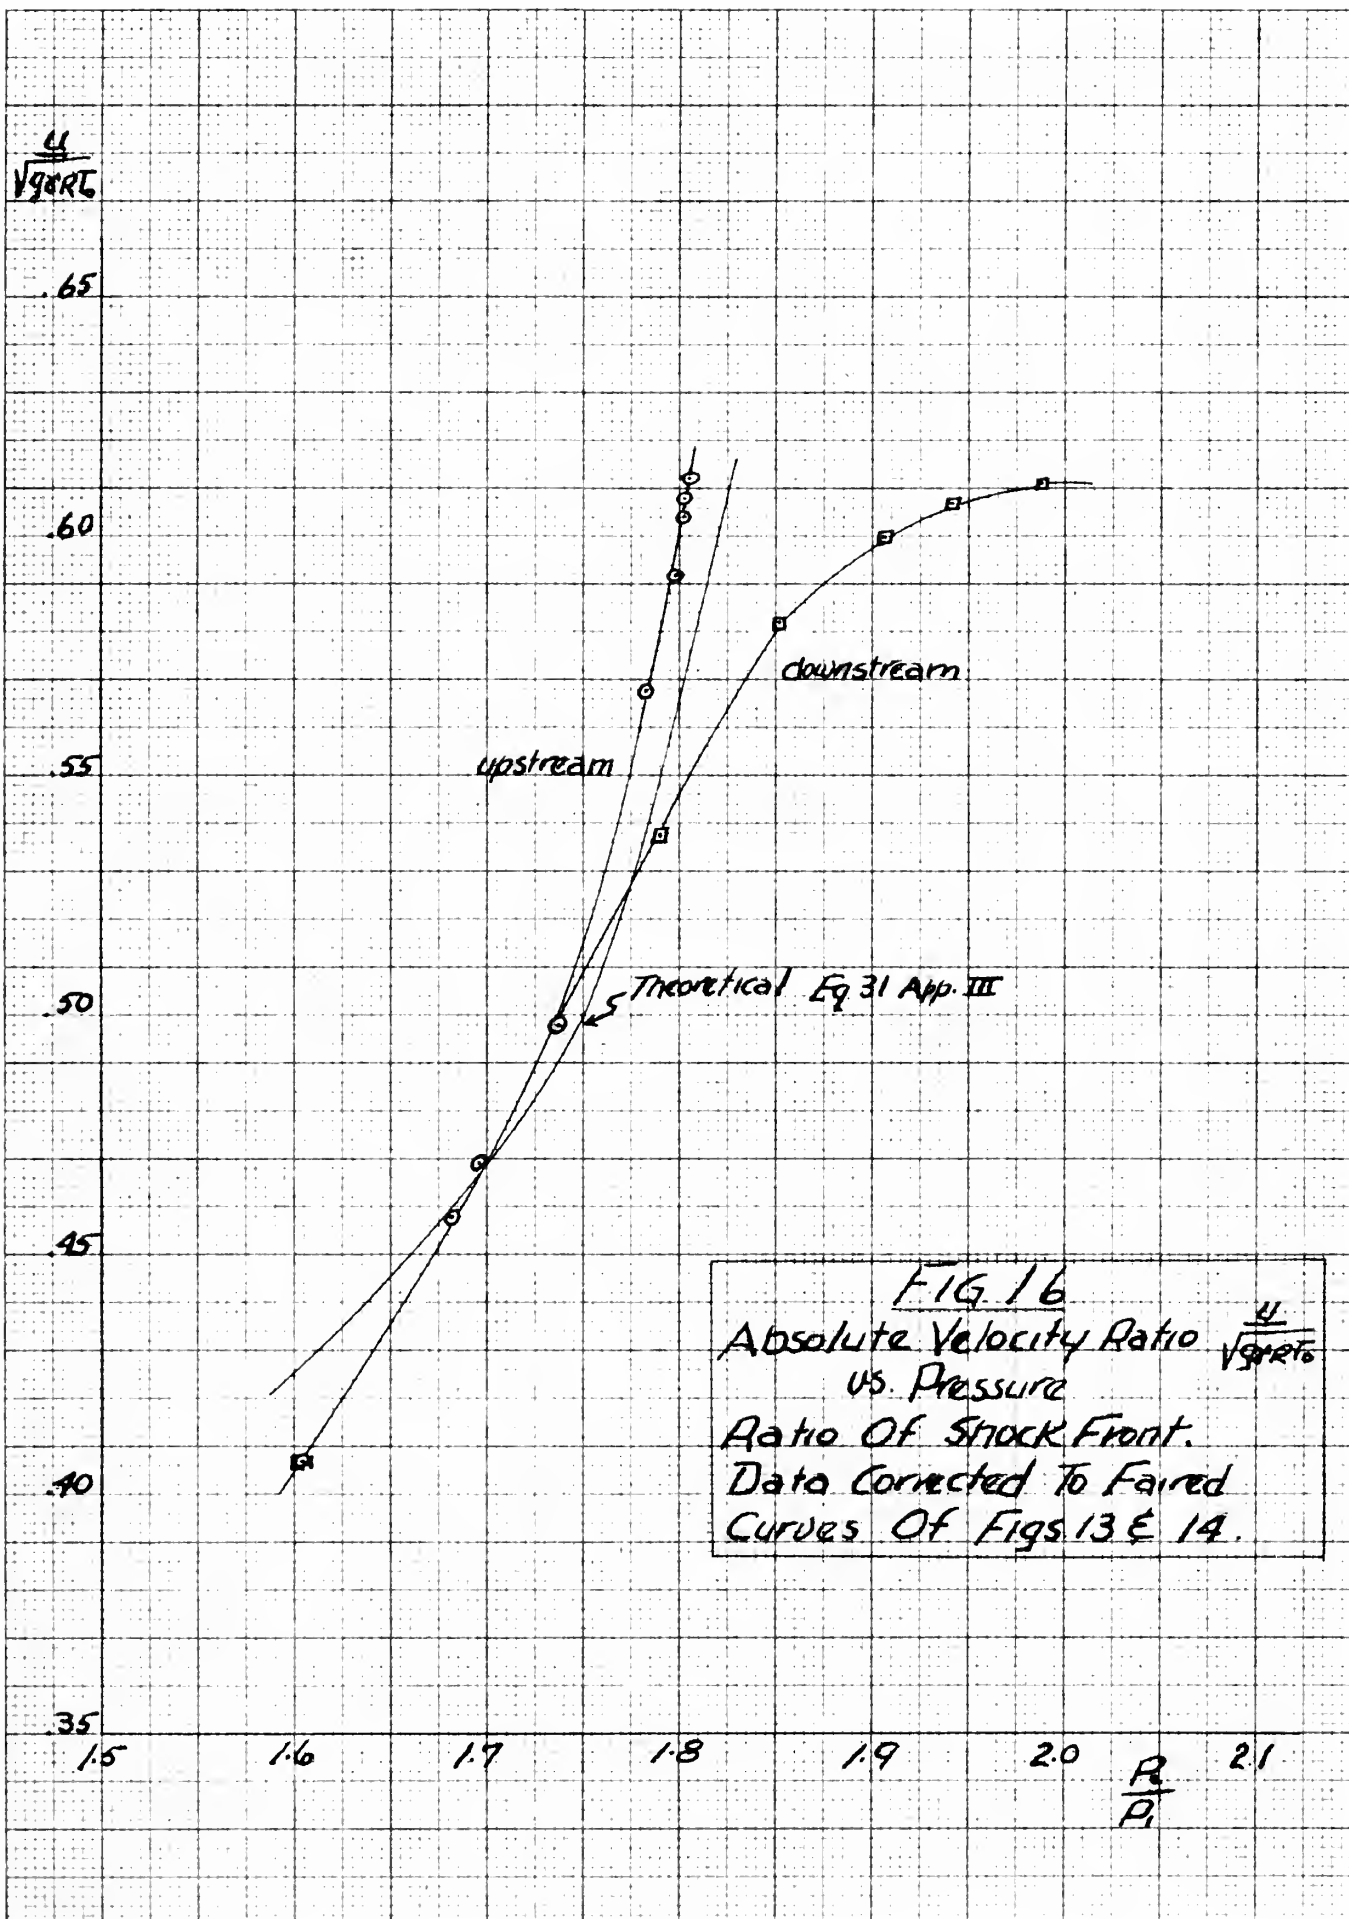 u
√gγRT₀
.65
.60
downstream
.55
upstream
Theoretical Eq 31 App. III
.50
.45
FIG. 16
Absolute Velocity Ratio u/√gγRT₀
vs. Pressure
Ratio Of Shock Front.
Data Corrected To Faired
Curves Of Figs 13 & 14.
.40
.35
1.5 1.6 1.7 1.8 1.9 2.0 2.1
P₂
P₁